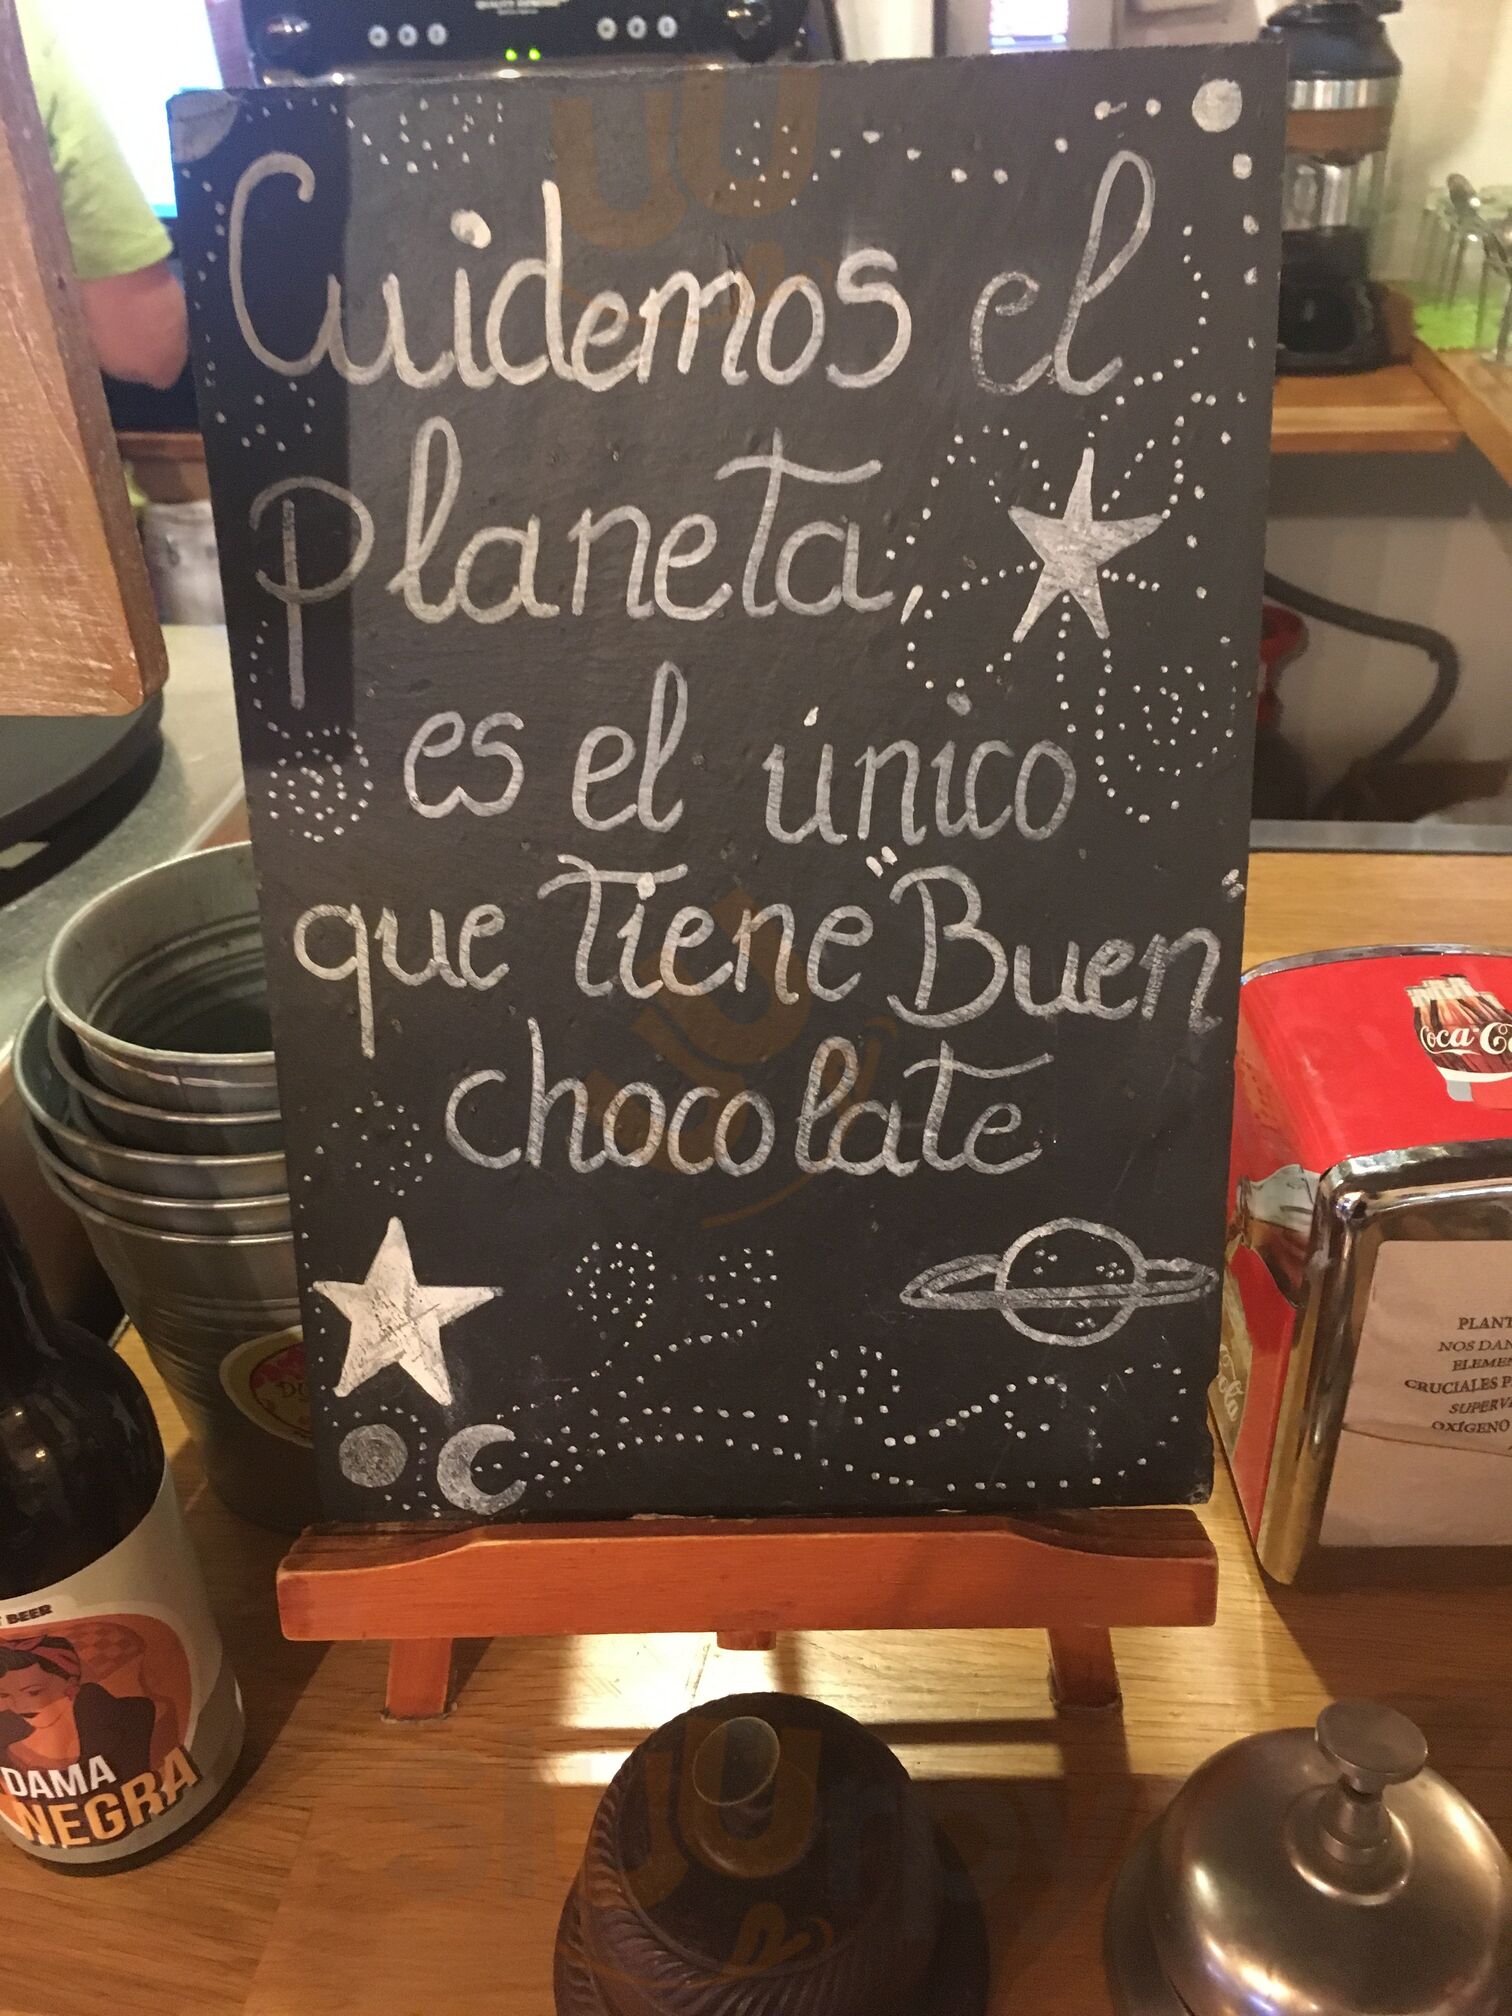 Cuidemos el
Planeta,
es el único
que Tiene "Buen"
chocolate
BEER
DAMA
NEGRA
Coca-Co
PLANT
NOS DAN
ELEMEN
CRUCIALES P
SUPERV
OXÍGENO